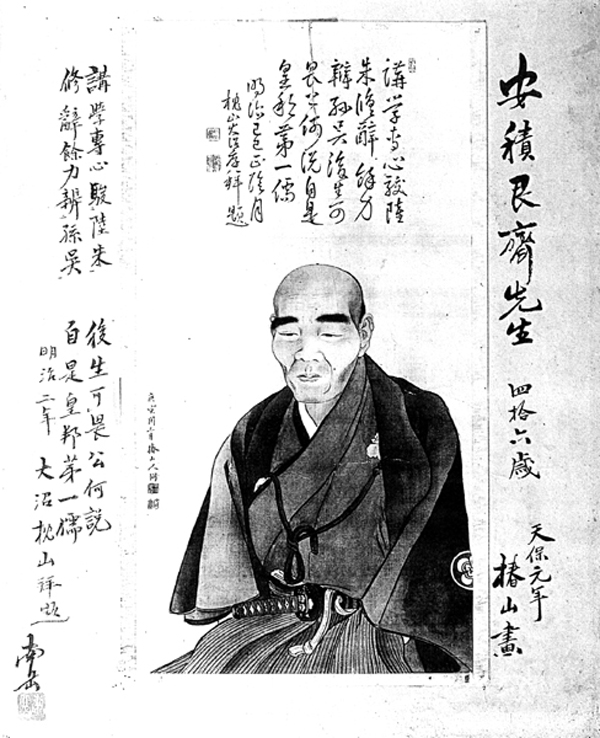 安積艮齊先生 四拾六歳
天保元年
椿山畫
講学専心駁陸
朱修辭餘力
辨孫呉後生可
畏公何説自是
皇邦第一儒
明治己巳 月
枕山大沼厚拜題
講學專心駁陸朱
修辭餘力辨孫吳
後生可畏公何説
自是皇邦第一儒
明治二年 大沼枕山拜題
南岳